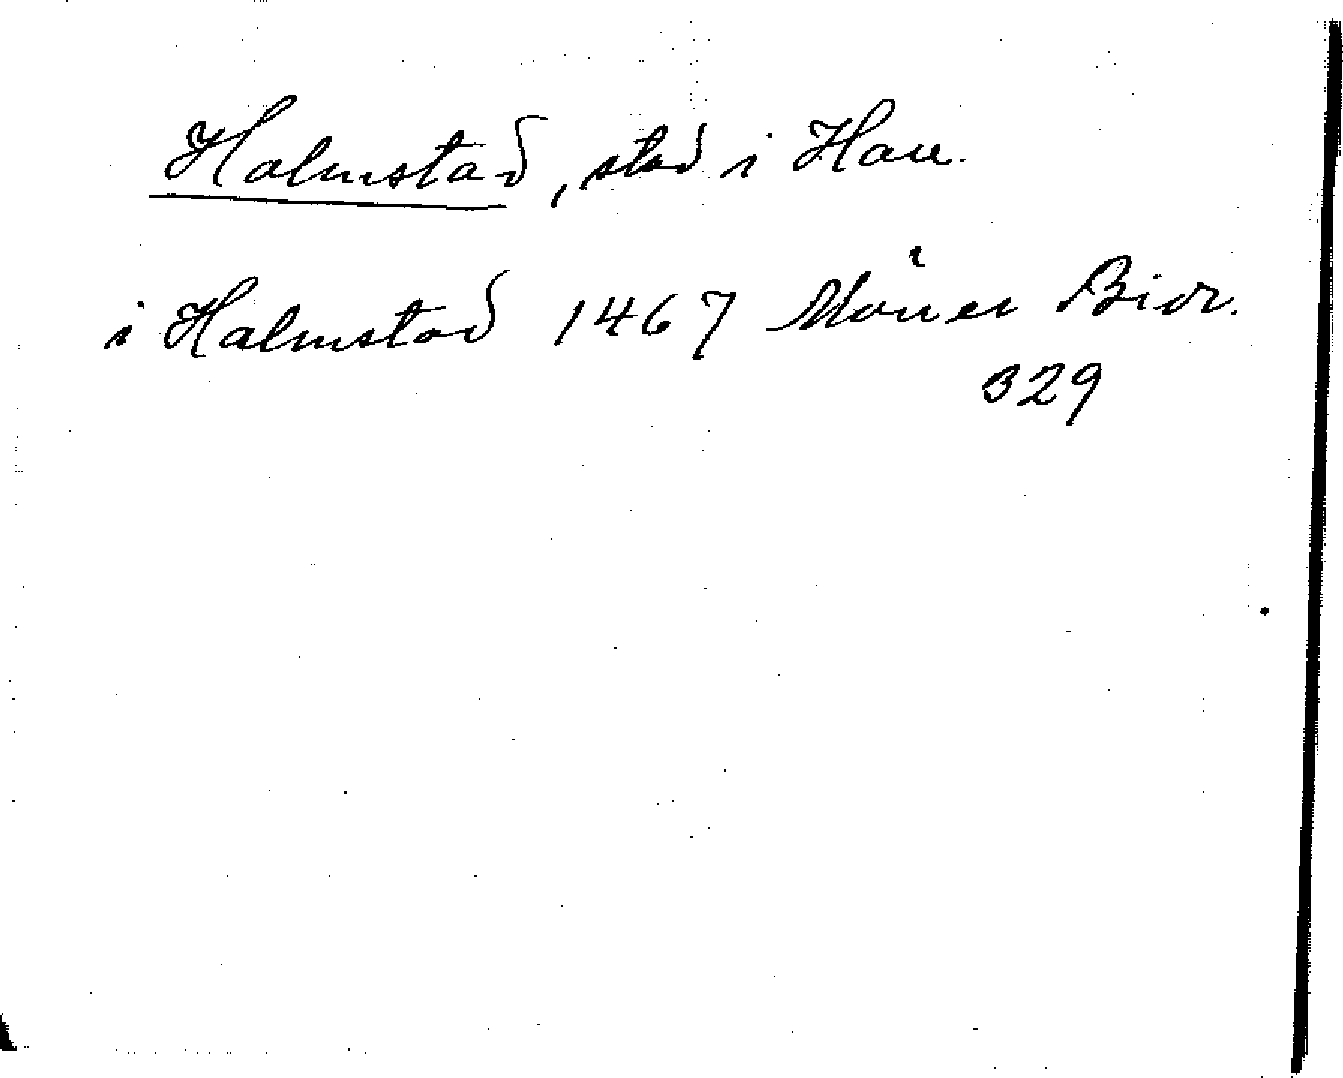 Halmstad, stad i Hall.
i Halmstad 1467 Möller Bidr.
329